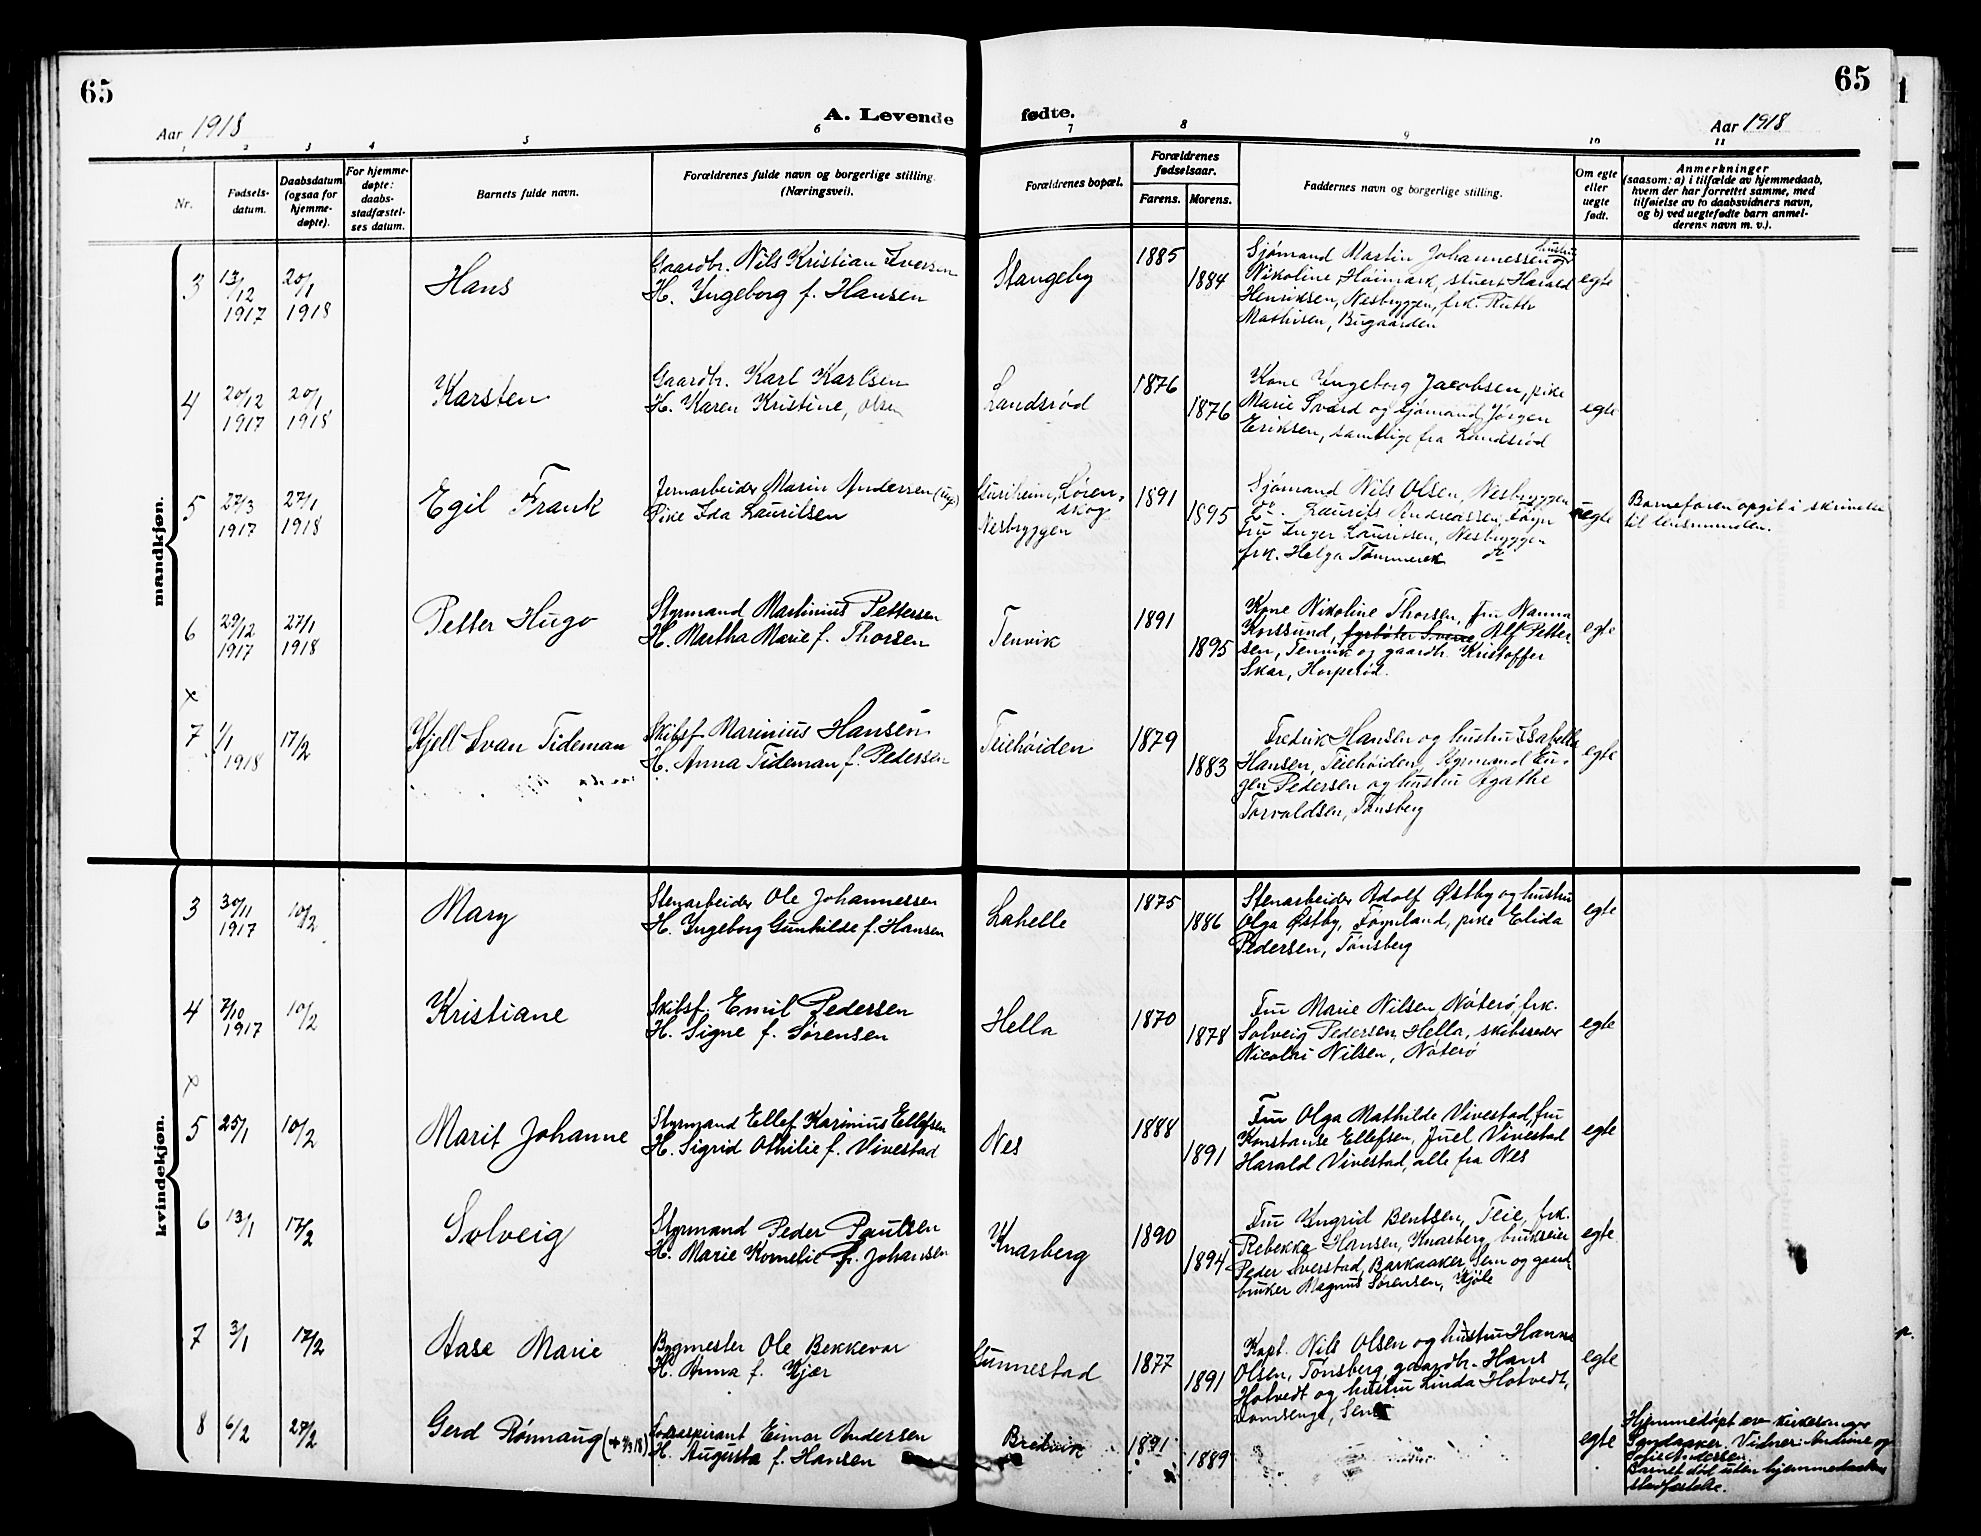 65
65
Aar 1918
A. Levende
fødte.
Aar 1918
1 2 3 4 5 6 7 8 9 10 11
Nr.
Fødsels-
datum.
Daabsdatum
(ogsaa for
hjemme-
døpte).
For hjemme-
døpte:
daabs-
stadfæstel-
ses datum.
Barnets fulde navn.
Forældrenes fulde navn og borgerlige stilling.
(Næringsvei).
Forældrenes bopæl.
Forældrenes
fødselsaar.
Farens.
Morens.
Faddernes navn og borgerlige stilling.
Om egte
eller
uegte
født.
Anmerkninger
(saasom: a) i tilfælde av hjemmedaab,
hvem der har forrettet samme, med
tilføielse av to daabsvidners navn,
og b) ved uegtefødte barn anmel-
derens navn m. v.).
mandkjøn.
3
13/12
1917
20/1
1918
Hans
Gaardbr. Nils Kristian Iversen
H. Ingeborg f. Hansen
Stangeby
1885
1884
Sjømand Martin Johannessen og hustru
Nikoline, Høimark, stuert Harald
Henriksen, Nesbryggen, frk. Ruth
Mathisen, Bugaarden
egte
4
20/12
1917
20/1
1918
Karsten
Gaardbr. Karl Karlsen
H. Karen Kristine, Olsen
Landsrød
1876
1876
Kone Ingeborg Jacobsen, pike
Marie Svard og sjømand Jørgen
Eriksen, samtlige fra Landsrød
egte
5
27/3
1917
27/1
1918
Egil Frank
Jernarbeider Marin Andersen
Pike Ida Lauritsen
Løren-
skog
Nesbryggen
1891
1895
Sjømand Nils Olsen, Nesbryggen
do. Laurits Andreassen, Føyn
Fru Inger Lauritsen, Nesbryggen
frk. Helga Tømmerek do
uegte
Barnefaren opgit i skrivelse
til lensmanden.
6
29/12
1917
27/1
1918
Petter Hugo
Styrmand Martinius Pettersen
H. Martha Marie f. Thorsen
Tenvik
1891
1895
Kone Nikoline Thorsen, fru Nanna
Korssund, fyrbøter Sverre Alf Petter-
sen, Tenvik og gaardbr. Kristoffer
Skar, Horperød.
egte
x
7
1/1
1918
17/2
Kjell Svan Tideman
Skibsf. Marinius Hansen
H. Anna Tideman f. Pedersen
Teiehøiden
1879
1883
Fredrik Hansen og hustru Isabella
Hansen, Teiehøiden, styrmand Eu-
gen Pedersen og hustru Agathe
Torvaldsen, Tønsberg
egte
kvindekjøn.
3
30/11
1917
10/2
Mary
Stenarbeider Ole Johannessen
H. Ingeborg Gunhilde f. Hansen
Lahelle
1875
1886
Stenarbeider Adolf Østby og hustru
Olga Østby, Føynland, pike Elida
Pedersen, Tønsberg
egte
4
7/10
1917
10/2
Kristiane
Skibsf. Emil Pedersen
H. Signe f. Sørensen
Hella
1870
1878
Fru Marie Nilsen, Nøterø, frk.
Solveig Pedersen, Hella, skibsreder
Nicolai Nilsen, Nøterø
egte
x
5
25/1
10/2
Marit Johanne
Styrmand Ellef Karinius Ellefsen
H. Sigrid Othilie f. Vivestad
Nes
1888
1891
Fru Olga Mathilde Vivestad, fru
Konstanse Ellefsen, Juel Vivestad
Harald Vivestad, alle fra Nes
egte
6
13/1
17/2
Solveig
Styrmand Peder Paulsen
H. Marie Kornelie f. Johansen
Knarberg
1890
1894
Fru Yngrid Bentsen, Teie, frk.
Rebekka Hansen, Knarberg, brukseier
Peder Sverstad, Barkaaker, Sem og gaard-
bruker Magnus Sørensen, Kjøle
egte
7
3/1
17/2
Aase Marie
Bygmester Ole Bekkevar
H. Anna f. Kjær
Gunnestad
1877
1891
Kapt. Nils Olsen og hustru Hanna
Olsen, Tønsberg, gaardbr. Hans
Hotvedt og hustru Linda Hotvedt,
Domsenge, Sem
egte
8
6/2
27/2
Gerd Rønnaug
Einar Andersen
H. Augusta f. Hansen
Bredvik
1891
1889
egte
Hjemmedøpt av kirkesanger
Sandaaker. Vidner: Andrine og
Sofie Andersen.
Barnet død uten hjemmedaabens
stadfæstelse.